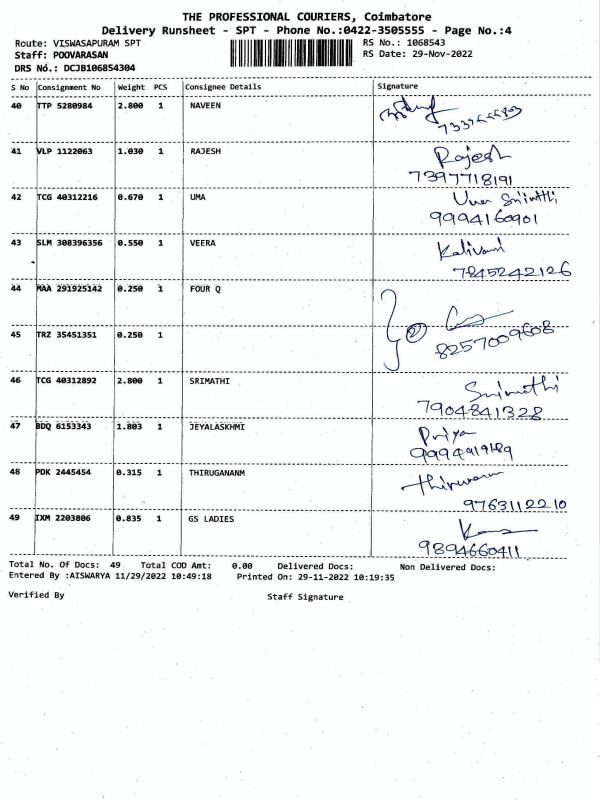 THE PROFESSIONAL COURIERS, Coimbatore
Delivery Runsheet - SPT - Phone No.:0422-3505555 - Page No.:4
Route: VISWASAPURAM SPT RS No.: 1068543
Staff: POOVARASAN RS Date: 29-Nov-2022
DRS No.: DCJB106854304
S No Consignment No Weight PCS Consignee Details Signature
40 TTP 5280984 2.800 1 NAVEEN
41 VLP 1122063 1.030 1 RAJESH Rajesh
7397718191
42 TCG 40312216 0.670 1 UMA Uma Srimathi
9994160901
43 SLM 308396356 0.550 1 VEERA Kalivani
7845242126
44 MAA 291925142 0.250 1 FOUR Q
② 8257009608
45 TRZ 35451351 0.250 1
46 TCG 40312892 2.800 1 SRIMATHI Srimathi
7904841328
47 BDQ 6153343 1.803 1 JEYALASKHMI Priya
9994919189
48 PDK 2445454 0.315 1 THIRUGANANM
9763112210
49 IXM 2203806 0.835 1 GS LADIES
9894660411
Total No. Of Docs: 49 Total COD Amt: 0.00 Delivered Docs: Non Delivered Docs:
Entered By :AISWARYA 11/29/2022 10:49:18 Printed On: 29-11-2022 10:19:35
Verified By Staff Signature